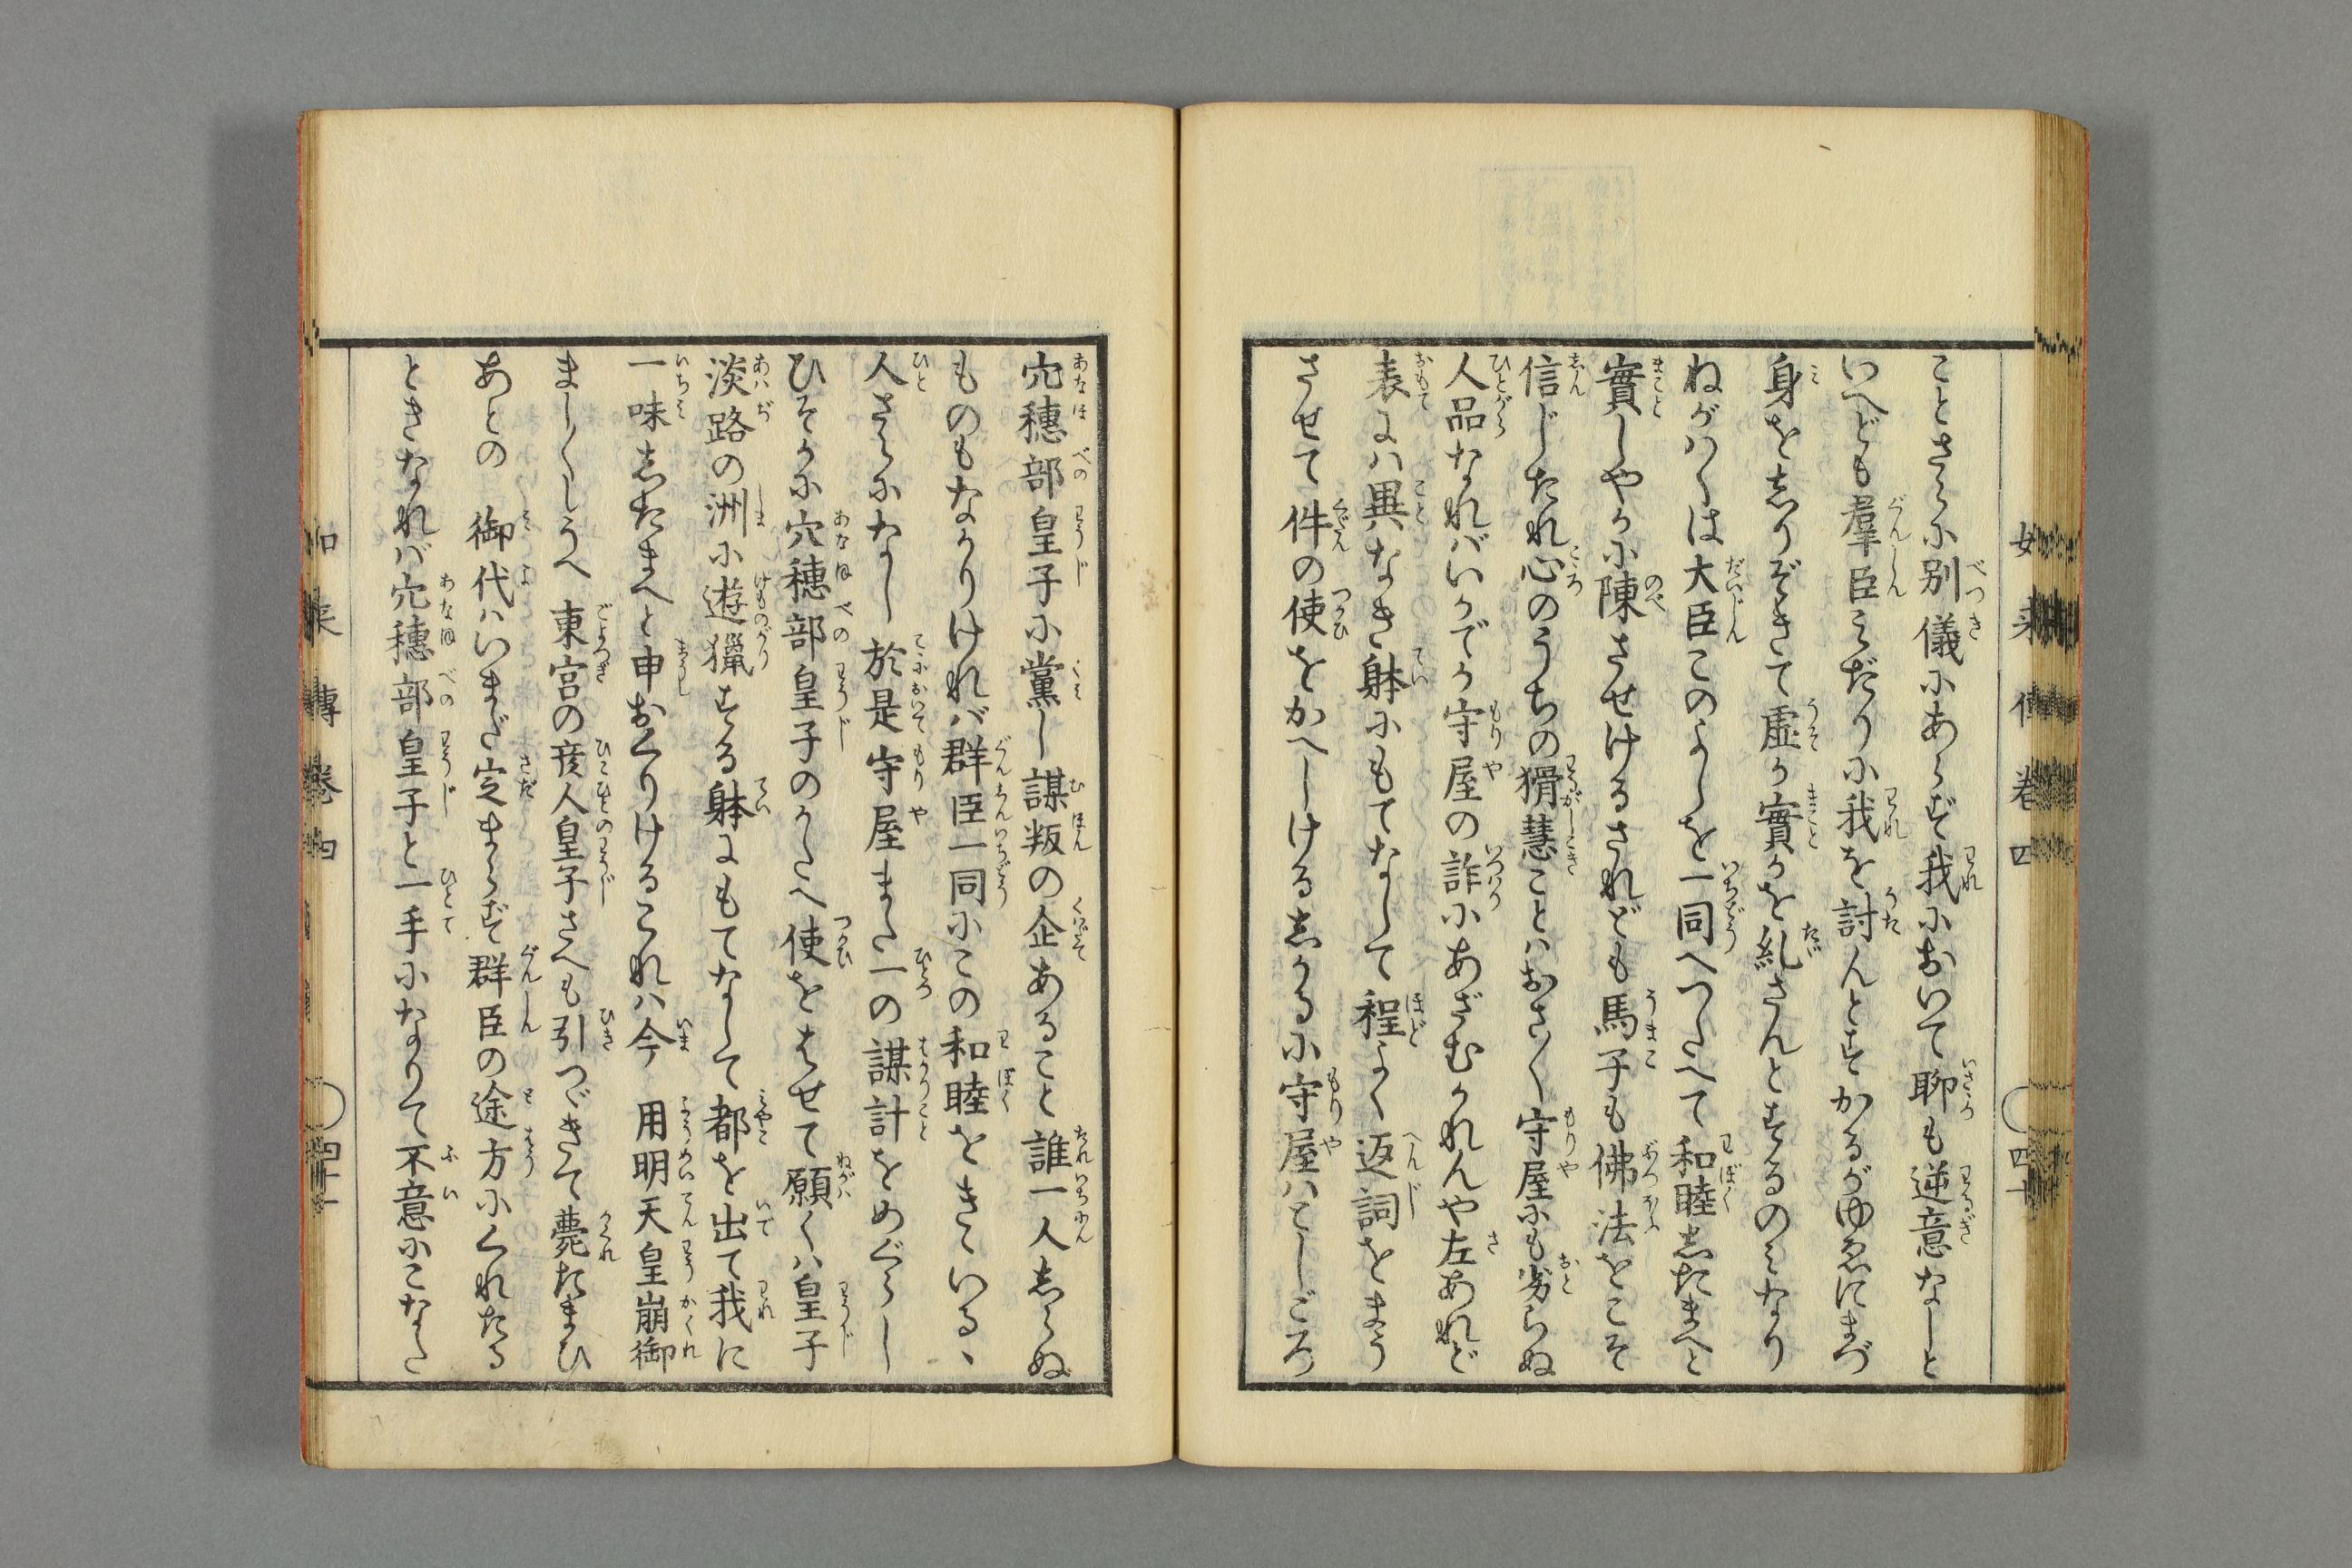 ことさらに別儀にあらず我において聊も逆意なしと
いへども羣臣みだりに我を討んとすかるがゆゑにまづ
身をしりぞきて虚か實かを糺さんとするのみなり
ねがハくは大臣このよしを一同へつたへて和睦したまへと
實しやかに陳させけるされども馬子も佛法をこそ
信じたれ心のうちの猾慧ことハおさ〳〵守屋にも劣らぬ
人品なれバいかでか守屋の詐にあざむかれんや左あれど
表にハ異なき躰にもてなして程よく返詞をまう
させて件の使をかへしけるしかるに守屋ハとしごろ
穴穗部皇子に黨し謀叛の企あること誰一人しらぬ
ものもなかりけれバ群臣一同にこの和睦をきゝいるゝ
人さらになし於是守屋また一の謀計をめぐらし
ひそかに穴穗部皇子のかたへ使をはせて願くハ皇子
淡路の洲に遊獵する躰にもてなして都を出て我に
一味したまへと申おくりけるこれハ今 用明天皇崩御
まし〳〵しうへ 東宮の彦人皇子さへも引つゞきて薨たまひ
あとの 御代ハいまだ定まらず群臣の途方にくれたる
ときなれバ穴穗部皇子と一手になりて不意にこなた
如来傳卷四
四十
四十一